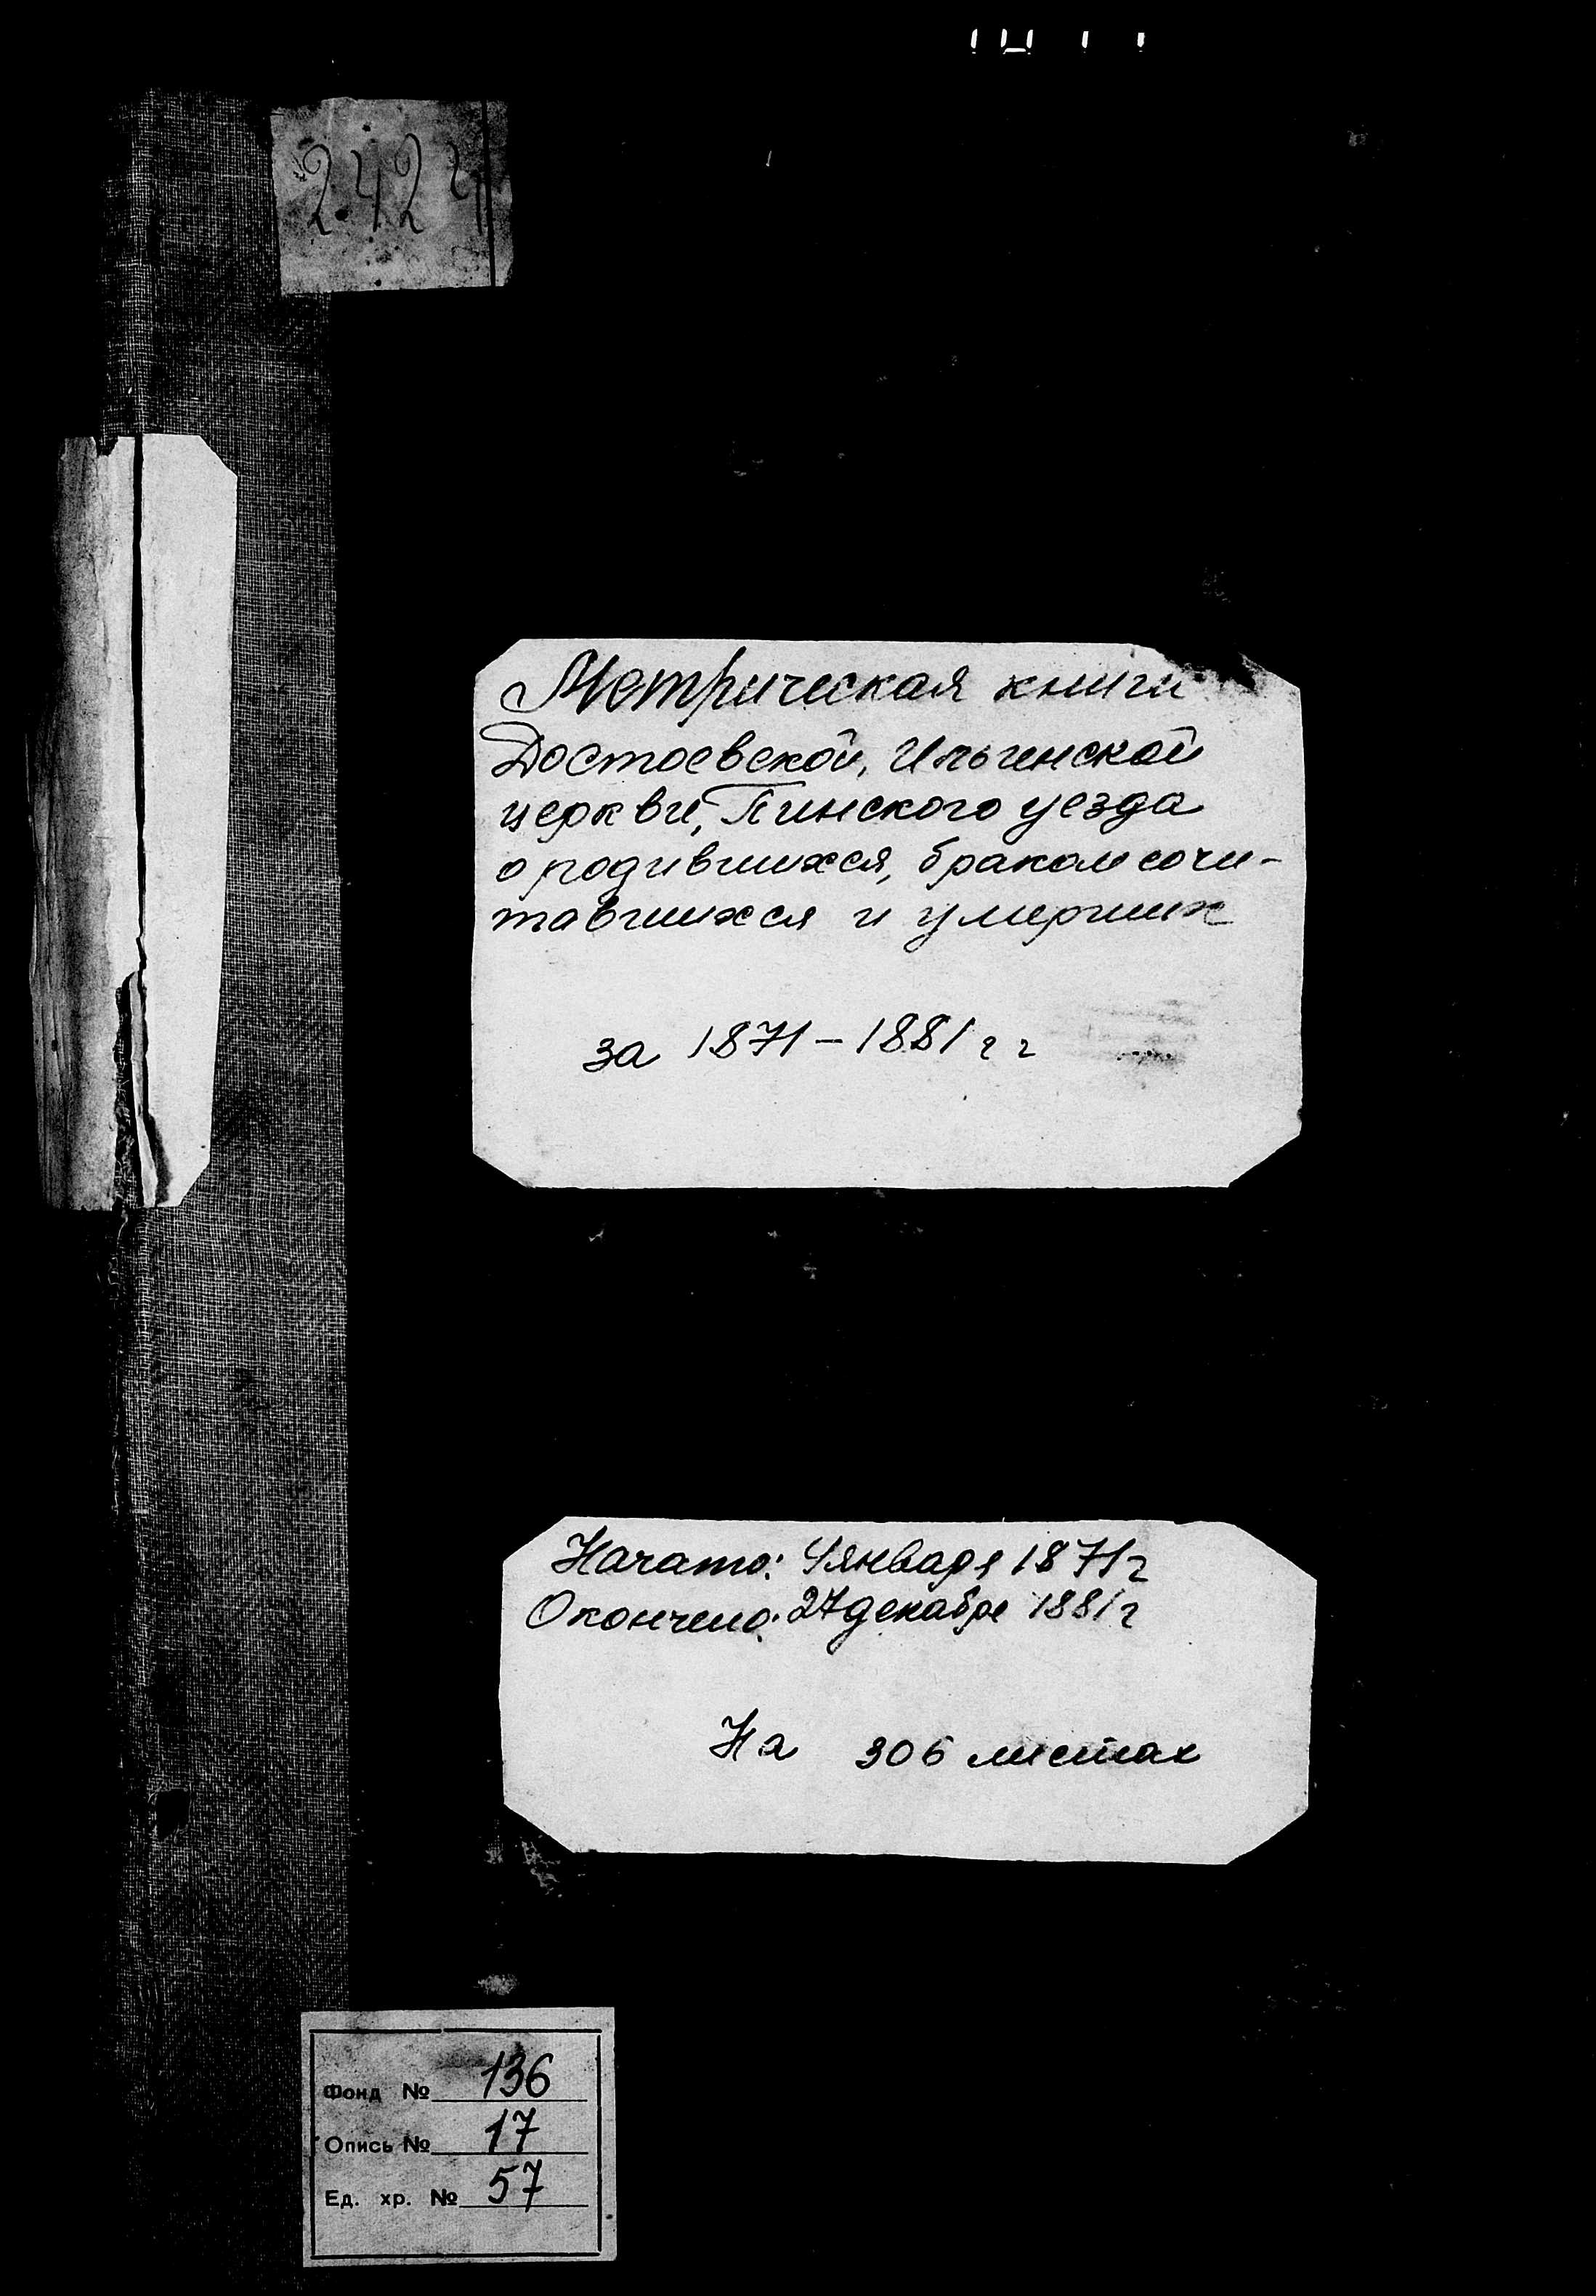 2424
Метрическая книги
Достоевской, Ильинской
церкви, Пинского уезда
о родившихся, браком сочи-
тавшихся и умерших
за 1871 – 1881 г г
Начато: 4 января 1871 г
Окончено: 27 декабря 1881 г
На 306 листах
Фонд № 136
Опись № 17
Ед. хр. № 57